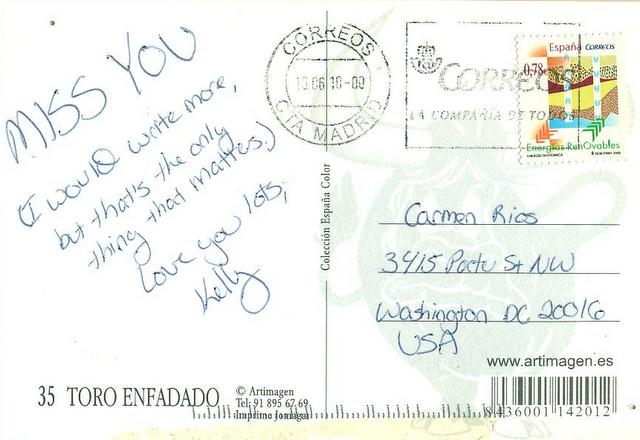 MISS YOU
(I would write more,
but that's the only
thing that matters.)
Love you lots,
Kelly
CORREOS
10.06.10-00
CTA MADRID
CORREOS
LA COMPAÑIA DE TODOS
España CORREOS
0,78€
Energías RenOvables
Colección España Color
Carmen Rios
3415 Porter St NW
Washington DC 20016
USA
www.artimagen.es
35 TORO ENFADADO
© Artimagen
Tel: 91 895 67 69
Imprime Jomagar
8436001142012